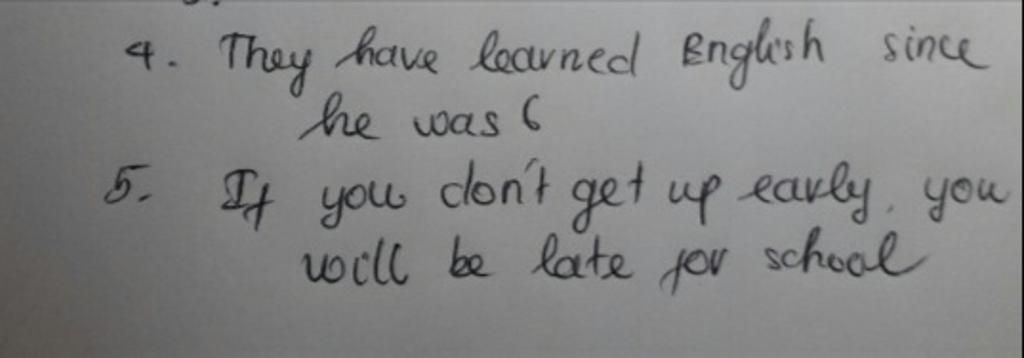 4. They have learned English since
he was 6
5. If you don't get up early, you
will be late for school